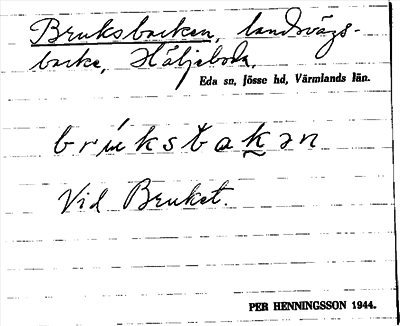 Bruksbacken, landsvägs-
backe, Häljeboda,
Eda sn, Jösse hd, Värmlands län.
brúksbakən
Vid Bruket.
PER HENNINGSSON 1944.